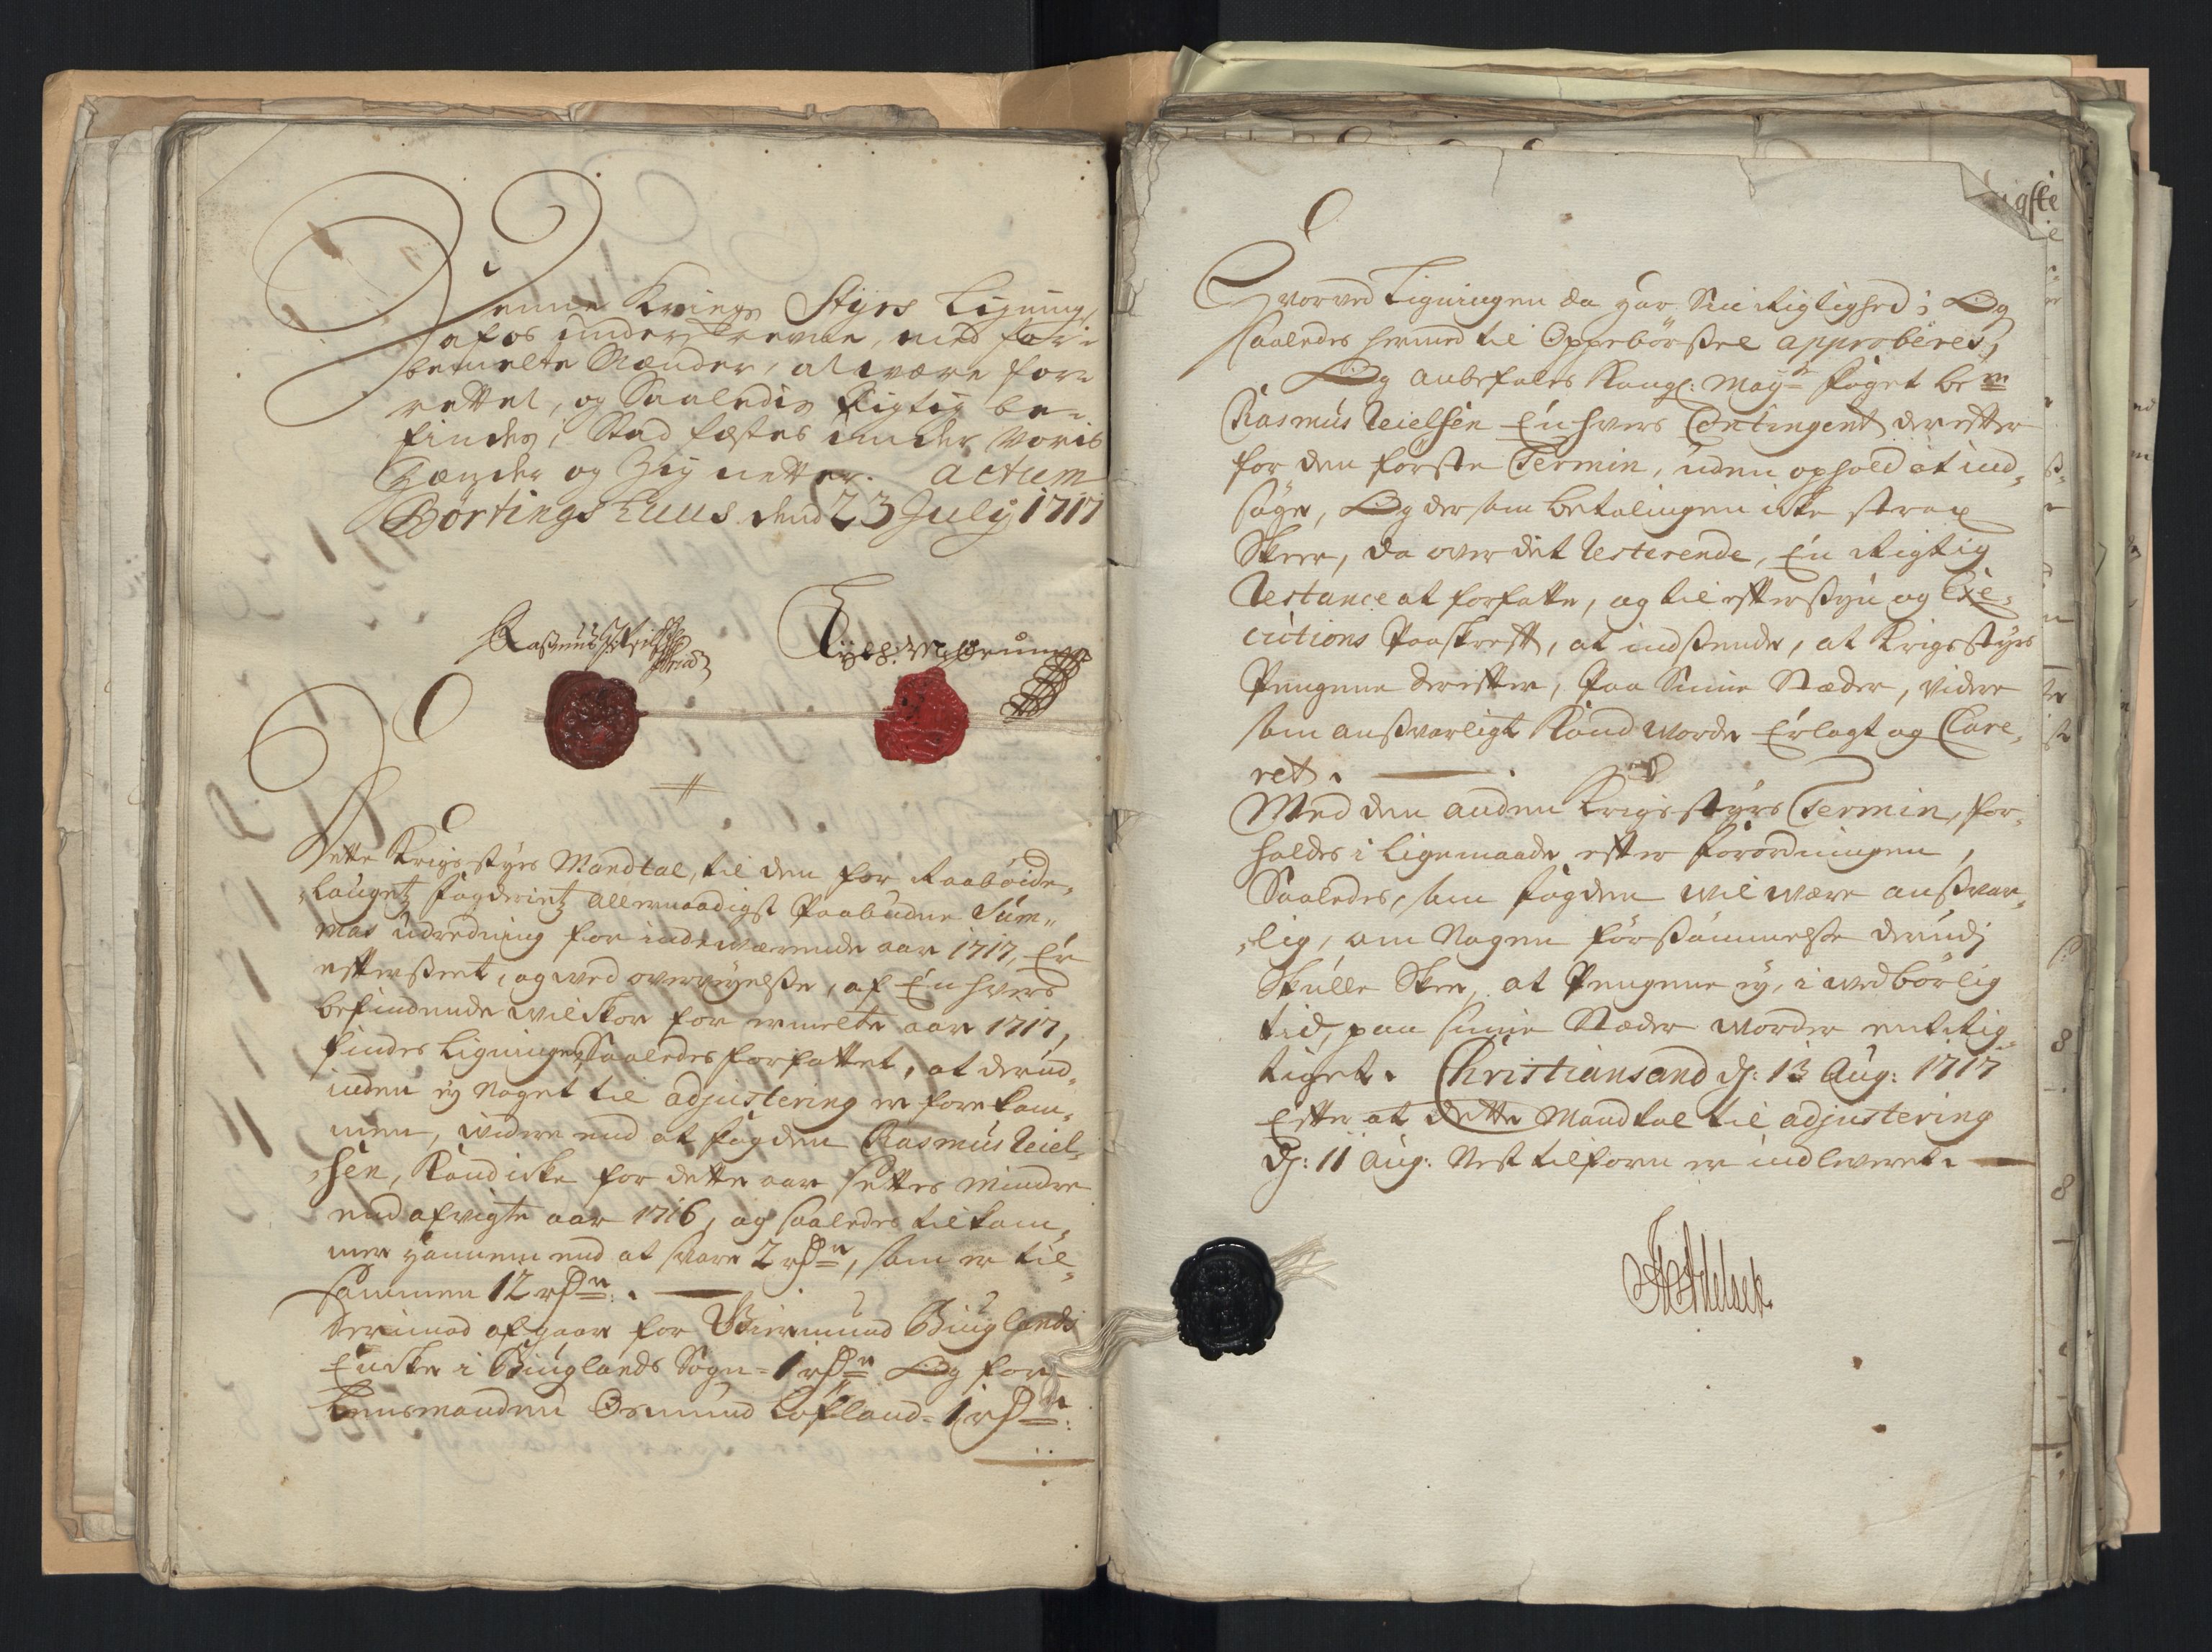 Denne Kriegs Styrs Ligning,
af os underskrevne, med for-
bemelte Mænder, at være for-
rettet, og Saaledis Rigtig be-
findes, Stadfæstes under voris
Hænder og Zignetter. actum
Börtings Huus dend 23 July 1717
Rasmus Nielsen
Dette Krigs styrs Mandtal, til den for Raaböide-
laugetz fogderietz allernaadigst Paabudne Sum-
mas Udredning for indeværende aar 1717, Er
efterseet, og ved overvejelse, af Enhvers
befindende Vilkor for ermelte aar 1717,
findes Ligningen Saaledes forfattet, at derud-
inden ey Noget til adjustering er forekom-
men, videre end at fogden Rasmus Niel-
sen, Kand icke for dette aar settes mindre
end afvigte aar 1716, og saaledes tilkom-
mer hannem end at svare 2 rdr, som er til-
sammen 12 rdr.
Derimod afgaar for Biermund Biuglands
Encke i Biuglands Sogn = 1 rdr Og for
Lensmanden Osmund Löfland = 1 rdr:
Hvorved Ligningen da har Sin Rigtighed; Og
saaledes hermed til Oppebörsel approberes,
Og anbefales Kongl: Mayts foget bem
Rasmus Nielsen Enhvers Contingent derefter
for den förste Termin, uden ophold at ind-
söge, Og dersom betalingen icke strax
Skeer, da over det Resterende, En Rigtig
Restance at forfatte, og til eftersyn og Exe-
cutions Paaskreft, at indsende, at Krigsstyrs
Pengene derefter, Paa Sine Stæder, videre
som ansvarligt Kand worde Erlagt og Clare-
ret.
Med den anden Krigsstyrs Termin, for-
holdes i ligemaade efter forordningen,
Saaledes, som fogden wil være answar-
lig, om Nogen forsömmelse derudj
Skulle Skee, at Pengene ey, i wedbörlig
tid, paa sine Stæder worder entrig-
tiget. Christiansand dj: 13 Aug: 1717
Efter at dette Mandtal til adjustering
dj: 11 Aug: Nest tilforn er indleveret.